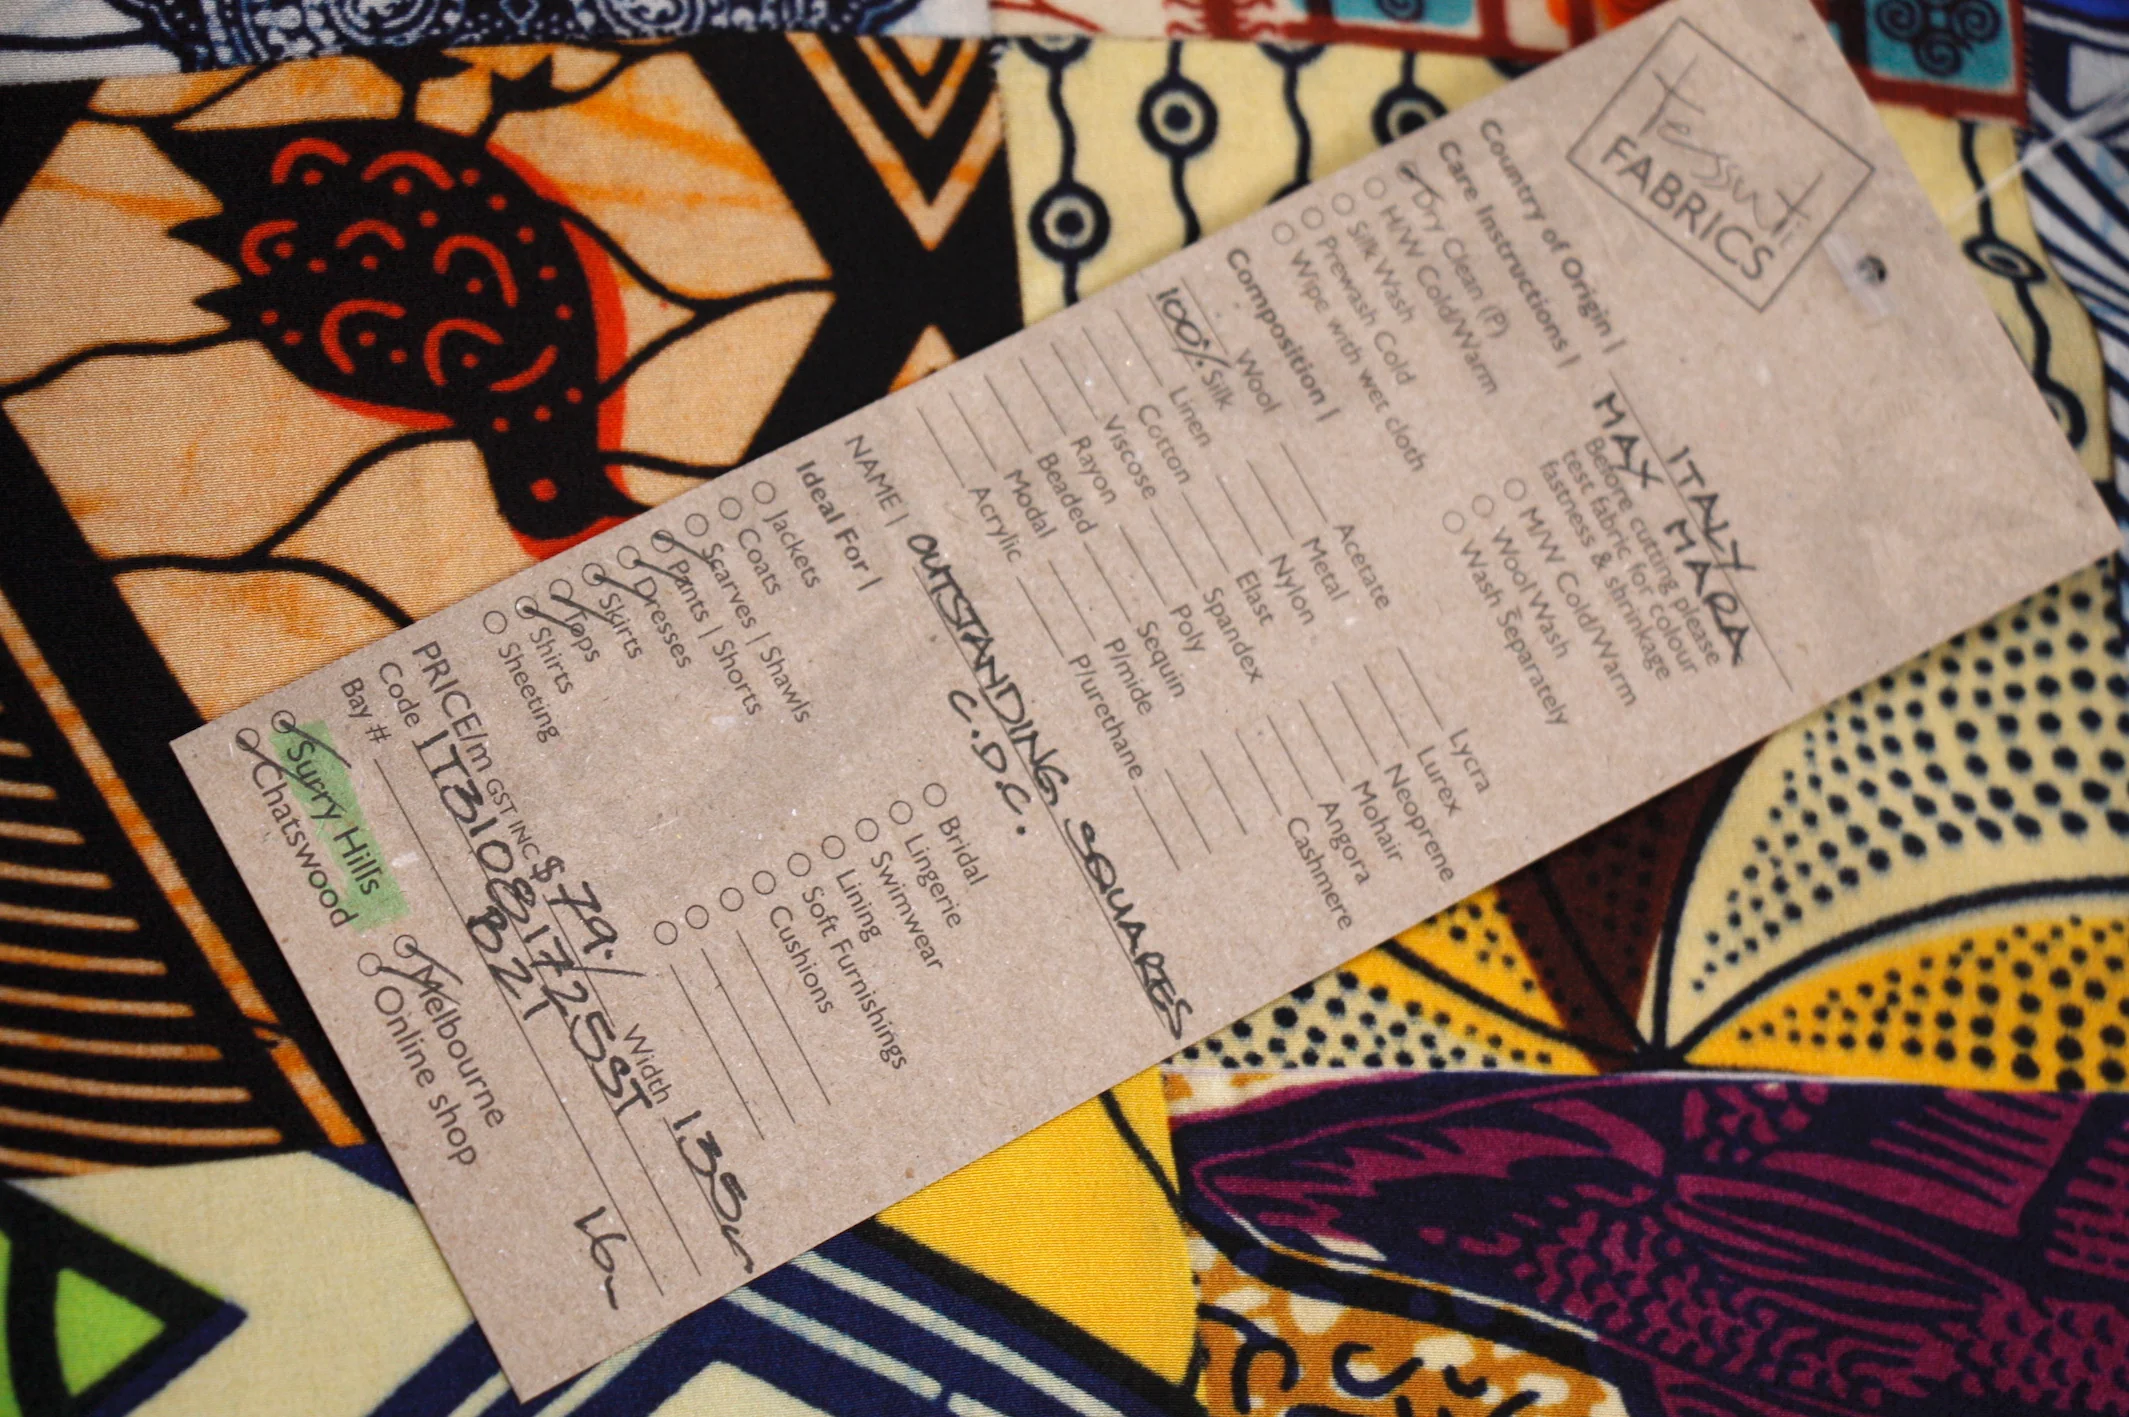 Tessuti
FABRICS
Country of Origin | ITALY
MAX MARA
Care Instructions |
Before cutting please
test fabric for colour
fastness & shrinkage
Dry Clean (P)
H/W Cold/Warm
M/W Cold/Warm
Silk Wash
Wool Wash
Prewash Cold
Wash Separately
Wipe with wet cloth
Composition |
Wool
Acetate
Lycra
100% Silk
Metal
Lurex
Linen
Nylon
Neoprene
Cotton
Elast
Mohair
Viscose
Spandex
Angora
Rayon
Poly
Cashmere
Beaded
Sequin
Modal
P/mide
Acrylic
P/urethane
NAME | OUTSTANDING SQUARES
C.D.C.
Ideal For |
Jackets
Bridal
Coats
Lingerie
Scarves | Shawls
Swimwear
Pants | Shorts
Lining
Dresses
Soft Furnishings
Skirts
Cushions
Tops
Shirts
Sheeting
PRICE/m GST INC $79./ Width 135cm
Code IT310817725ST
Bay # B21
16m
Surry Hills
Melbourne
Chatswood
Online shop